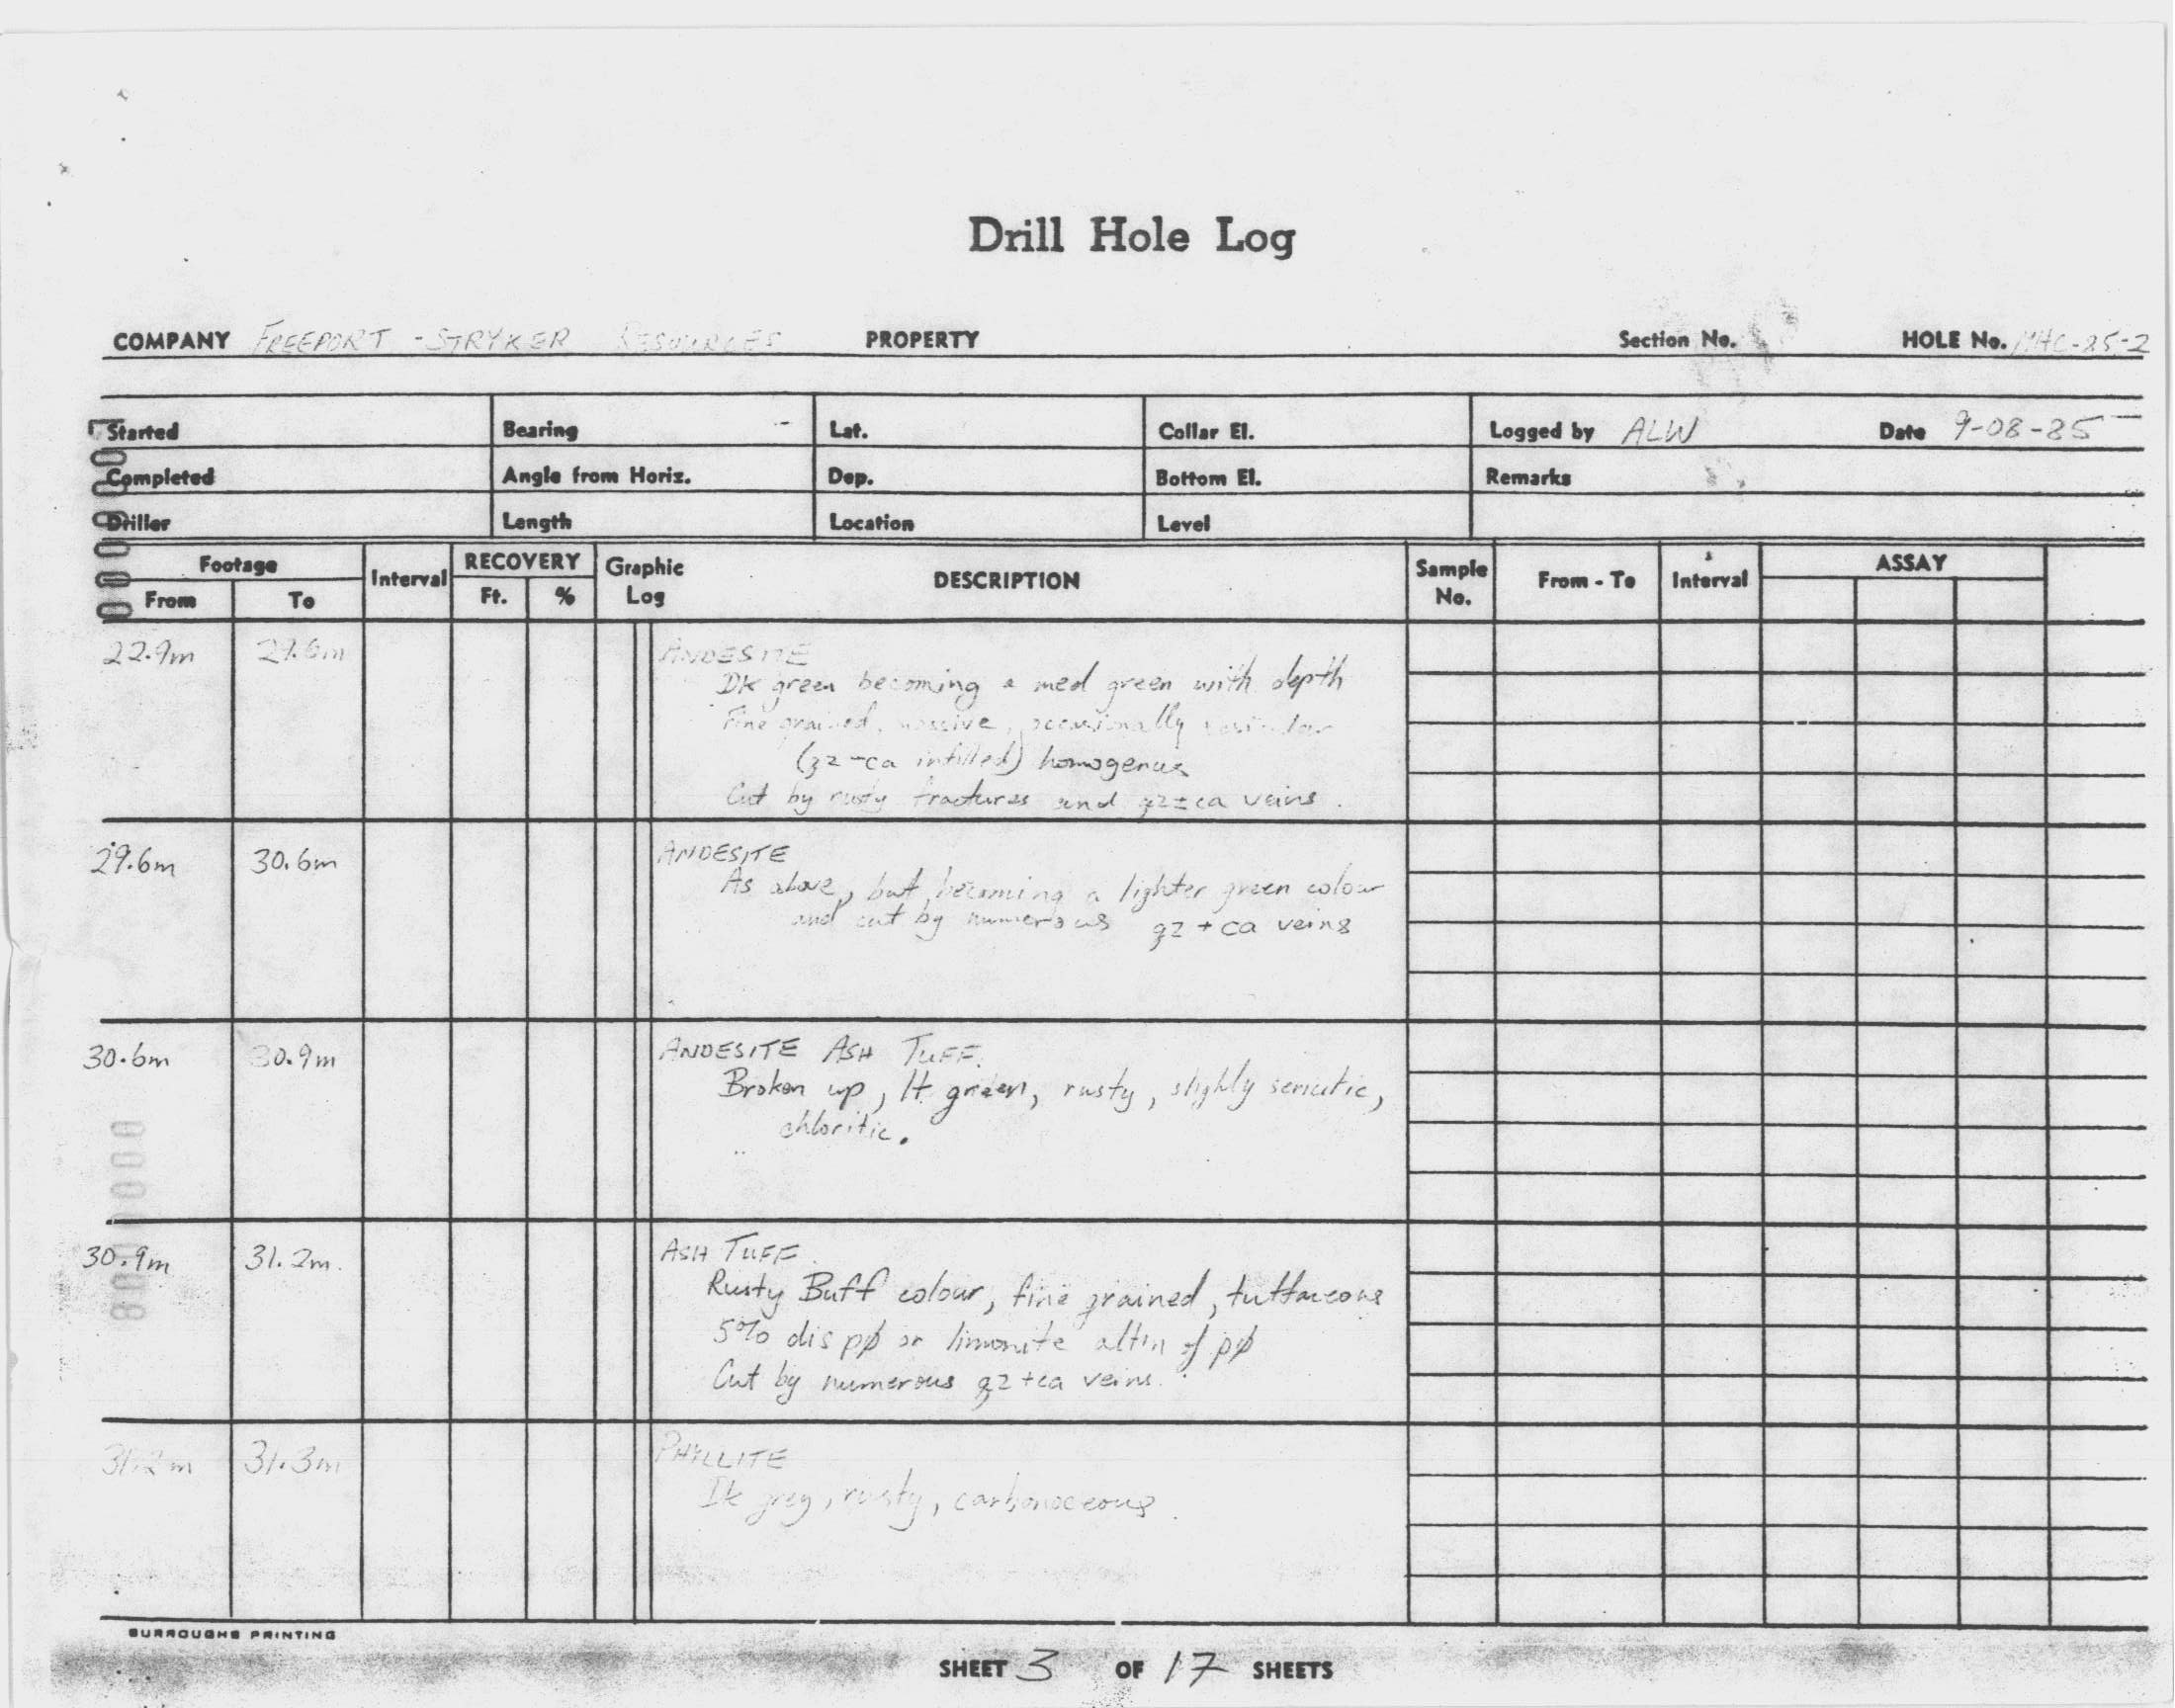 Drill Hole Log
COMPANY FREEPORT - STRYKER RESOURCES PROPERTY Section No. HOLE No. MHC-85-2
Started Bearing Lat. Collar El. Logged by ALW Date 9-08-85
Completed Angle from Horiz. Dep. Bottom El. Remarks
Driller Length Location Level
Footage Interval RECOVERY Graphic Log DESCRIPTION Sample No. From - To Interval ASSAY
From To Ft. %
22.9m 29.6m ANDESITE
Dk green becoming a med green with depth
Fine grained, massive, occasionally vesicular
(qz-ca infilled) homogenus
Cut by rusty fractures and qz±ca veins.
29.6m 30.6m ANDESITE
As above, but becoming a lighter green colour
and cut by numerous qz + ca veins
30.6m 30.9m ANDESITE ASH TUFF.
Broken up, lt green, rusty, slighly sericitic,
chloritic.
30.9m 31.2m. ASH TUFF
Rusty Buff colour, fine grained, tuffaceous
5% dis pø or limonite altn of pø
Cut by numerous qz+ca veins.
31.2m 31.3m PHYLLITE
Dk grey, rusty, carbonaceous.
BURROUGHS PRINTING
SHEET 3 OF 17 SHEETS